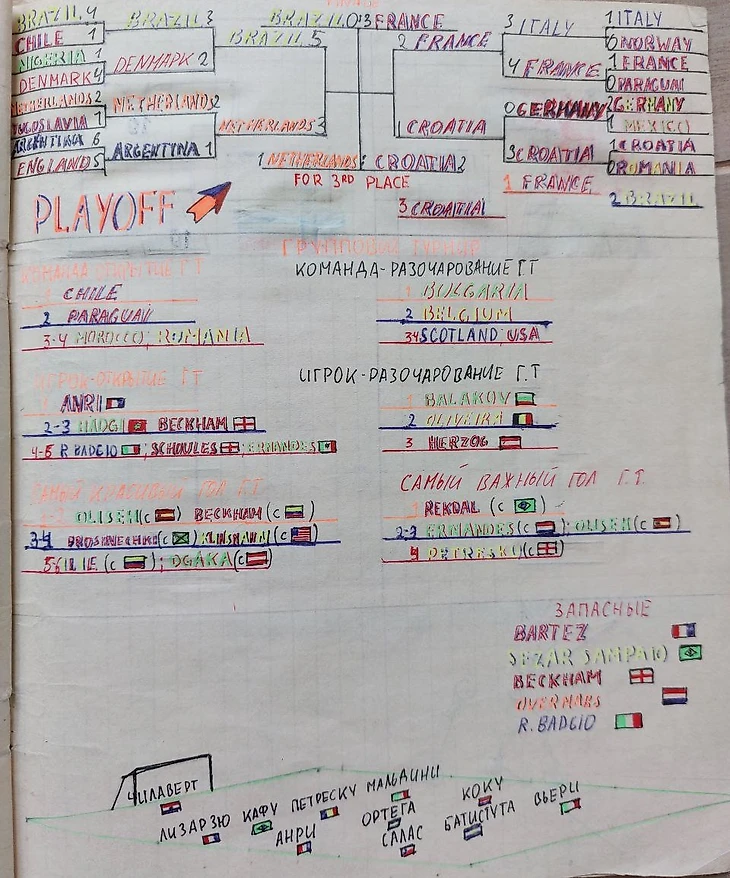 BRAZIL 4 BRAZIL 3 BRAZIL 0:3 FRANCE 3 ITALY 1 ITALY
CHILE 1 BRAZIL 5 2 FRANCE 0 NORWAY
NIGERIA 1 DENMARK 2 4 FRANCE 1 FRANCE
DENMARK 4 0 PARAGUAI
NETHERLANDS 2 NETHERLANDS 2 0 GERMANY 2 GERMANY
JUGOSLAVIA 1 NETHERLANDS CROATIA 1 MEXICO
ARGENTINA 6 ARGENTINA 1 3 CROATIA 1 CROATIA
ENGLAND 5 1 NETHERLANDS CROATIA 2 0 ROMANIA
FOR 3RD PLACE 1 FRANCE
2 BRAZIL
3 CROATIA
PLAYOFF
ГРУППОВОЙ ТУРНИР
КОМАНДА-ОТКРЫТИЕ Г.Т КОМАНДА-РАЗОЧАРОВАНИЕ Г.Т
1 CHILE 1 BULGARIA
2 PARAGUAY 2 BELGIUM
3-4 MOROCCO; ROMANIA 3-4 SCOTLAND; USA
ИГРОК-ОТКРЫТИЕ Г.Т ИГРОК-РАЗОЧАРОВАНИЕ Г.Т
1 ANRI 1 BALAKOV
2-3 HADGI BECKHAM 2 OLIVEIRA
4-6 R.BADGIO; SCHOULES; ERNANDES 3 HERZOG
САМЫЙ КРАСИВЫЙ ГОЛ Г.Т САМЫЙ ВАЖНЫЙ ГОЛ Г.Т.
1-2 OLISEH (с ) BECKHAM (с ) 1 REKDAL (с )
3-4 (с ) KLINSMANN (с ) 2-3 ERNANDES (с ); OLISEH (с )
5-6 ILIE (с ); OGAKA (с ) 4 PETRESKU (с )
ЗАПАСНЫЕ
BARTEZ
SEZAR SAMPAIO
BECKHAM
OVERMARS
R.BADGIO
ЧИЛАВЕРТ
ЛИЗАРЗЮ КАФУ ПЕТРЕСКУ МАЛЬДИНИ
АНРИ ОРТЕГА КОКУ ВЬЕРИ
САЛАС БАТИСТУТА